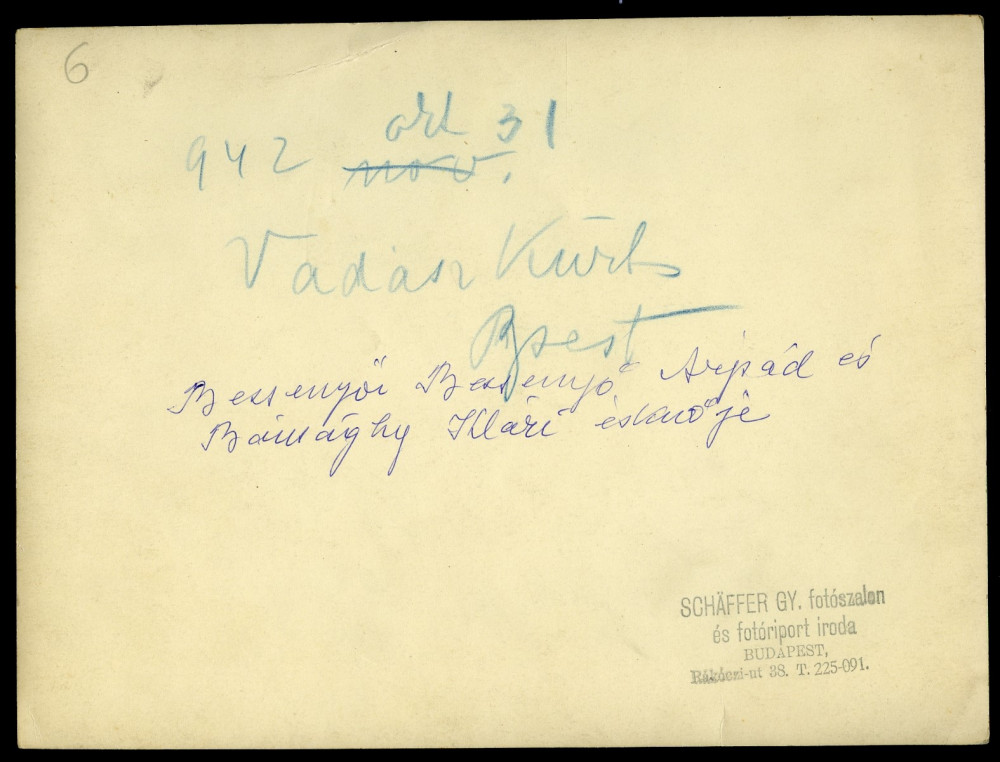 6
okt 31
942 nov.
Vadász Kürt
Bpest
Bessenyői Bessenyő Árpád és
Klári esküvője
SCHÄFFER GY. fotószalon
és fotóriport iroda
BUDAPEST,
Rákóczi-ut 38. T. 225-091.